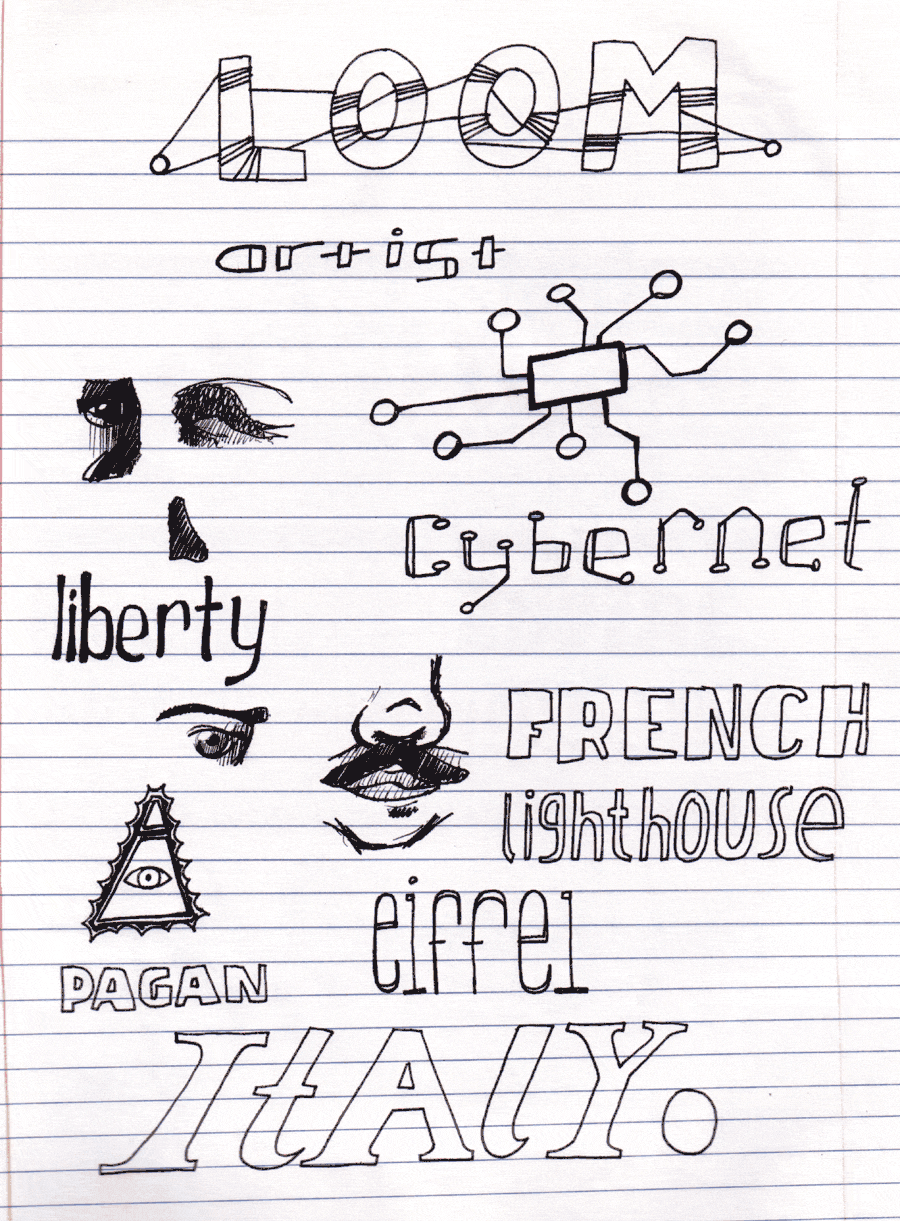 LOOM
artist
Cybernet
liberty
FRENCH
lighthouse
eiffel
PAGAN
ItAlY.